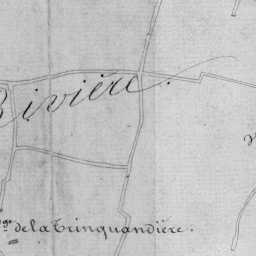 Rivière.
de la Trinquandière.